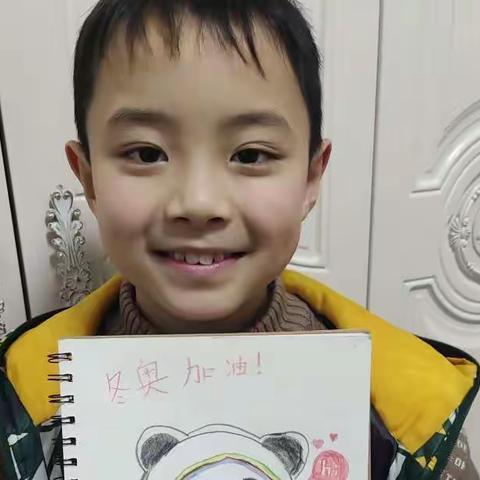 冬奥加油!